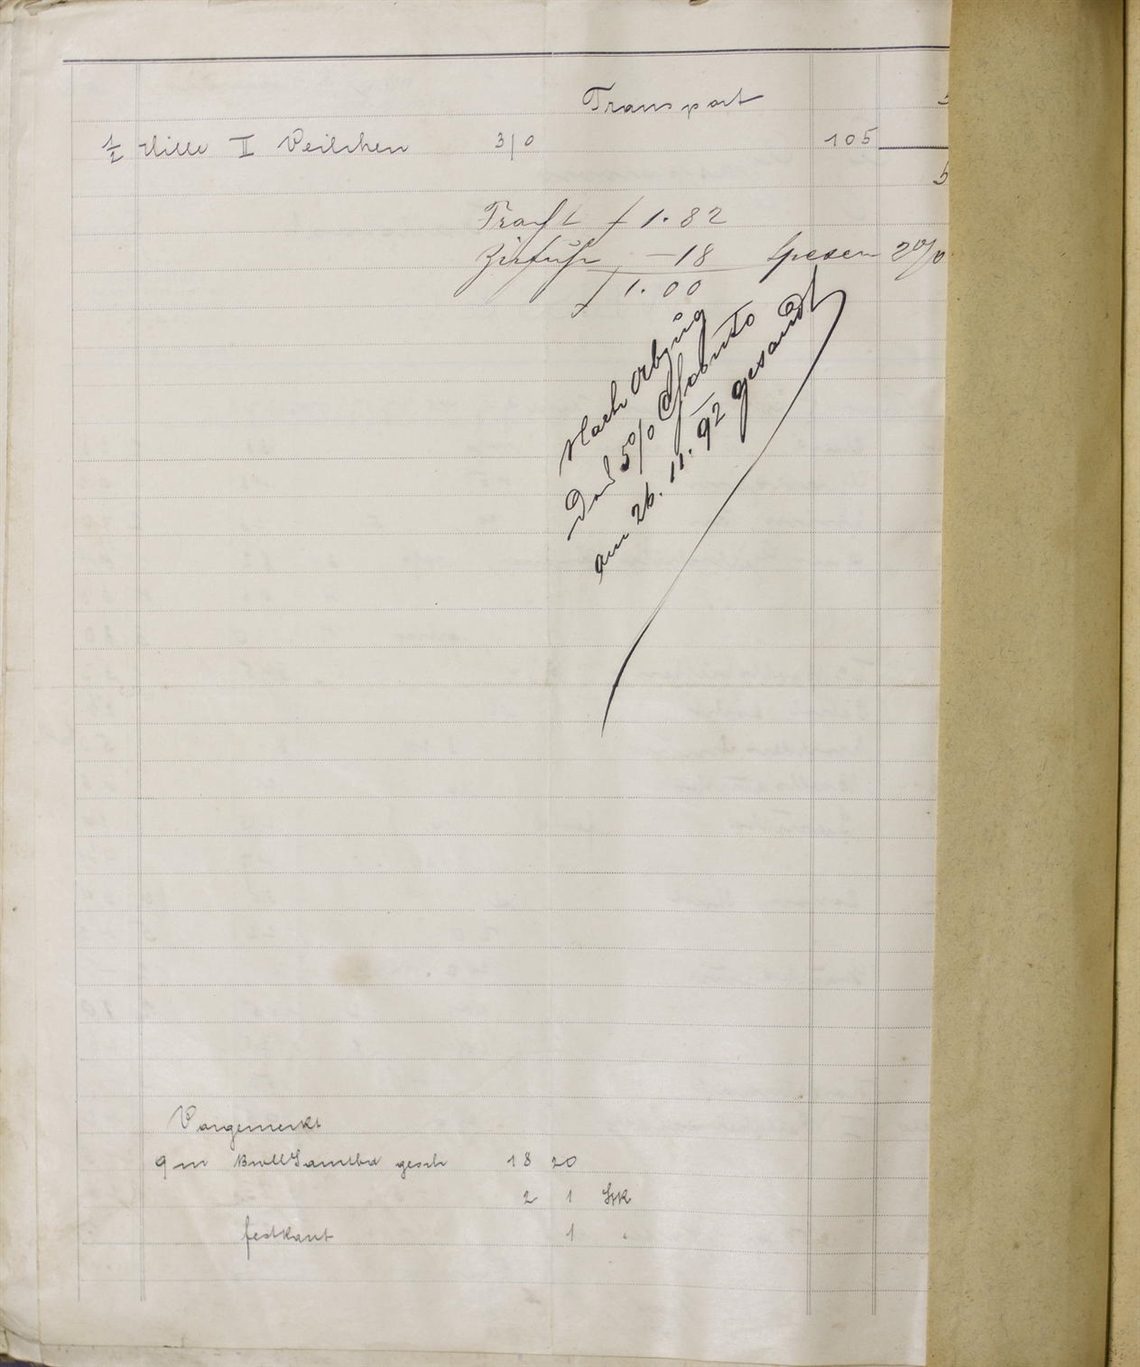 Transport
½ Mille II Veilchen 3/0 105
5
Fracht f 1.82
Zufuhr —18 Spesen 2%
f 1.00
Nach Abzug
5% Sconto
am 26. 11. 92 gesandt
Vorgemerkt
9 m gesch 18 20
2 1 Stk
festkant 1 "